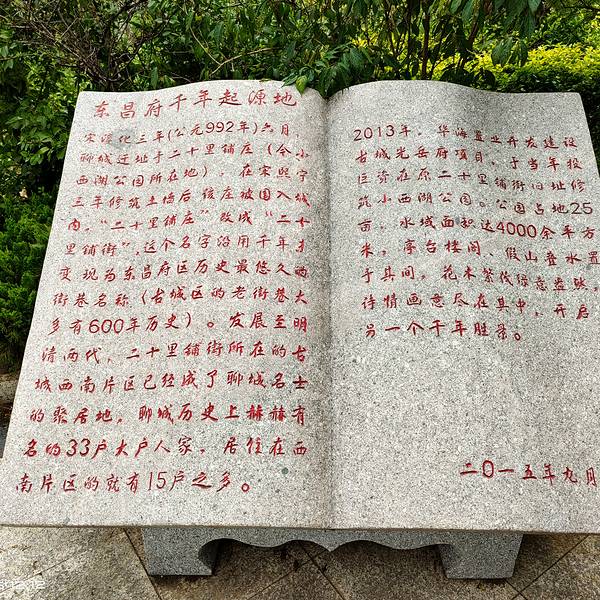 东昌府千年起源地
宋淳化三年(公元992年)六月，
聊城迁址于二十里铺庄（今小
西湖公园所在地），在宋熙宁
三年修筑土墙后，该庄被围入城
内，“二十里铺庄”改成“二十
里铺街”，这个名字沿用千年才
变现为东昌府区历史最悠久的
街巷名称（古城区的老街巷大
多有600年历史）。发展至明
清两代，二十里铺街所在的古
城西南片区已经成了聊城名士
的聚居地，聊城历史上赫赫有
名的33户大户人家，居住在西
南片区的就有15户之多。
2013年，华海置业开发建设
古城光岳府项目，于当年投
巨资在原二十里铺街旧址修
筑小西湖公园。公园占地25
亩，水域面积达4000余平方
米，亭台楼阁、假山叠水置
于其间，花木繁茂绿意盎然，
诗情画意尽在其中，开启
另一个千年胜景。
二〇一五年九月